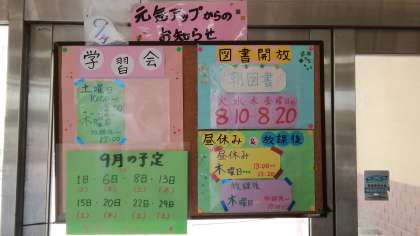 元気アップからの
お知らせ
9/4
学習会
土曜日
10:00
木曜日
放課後〜
17:00
9月の予定
1日・6日・8日・13日
15日・20日・22日・29日
図書開放
朝図書
火水木金曜日
8:10〜8:20
昼休み & 放課後
昼休み
木曜日… 13:00〜
13:20
放課後
木曜日